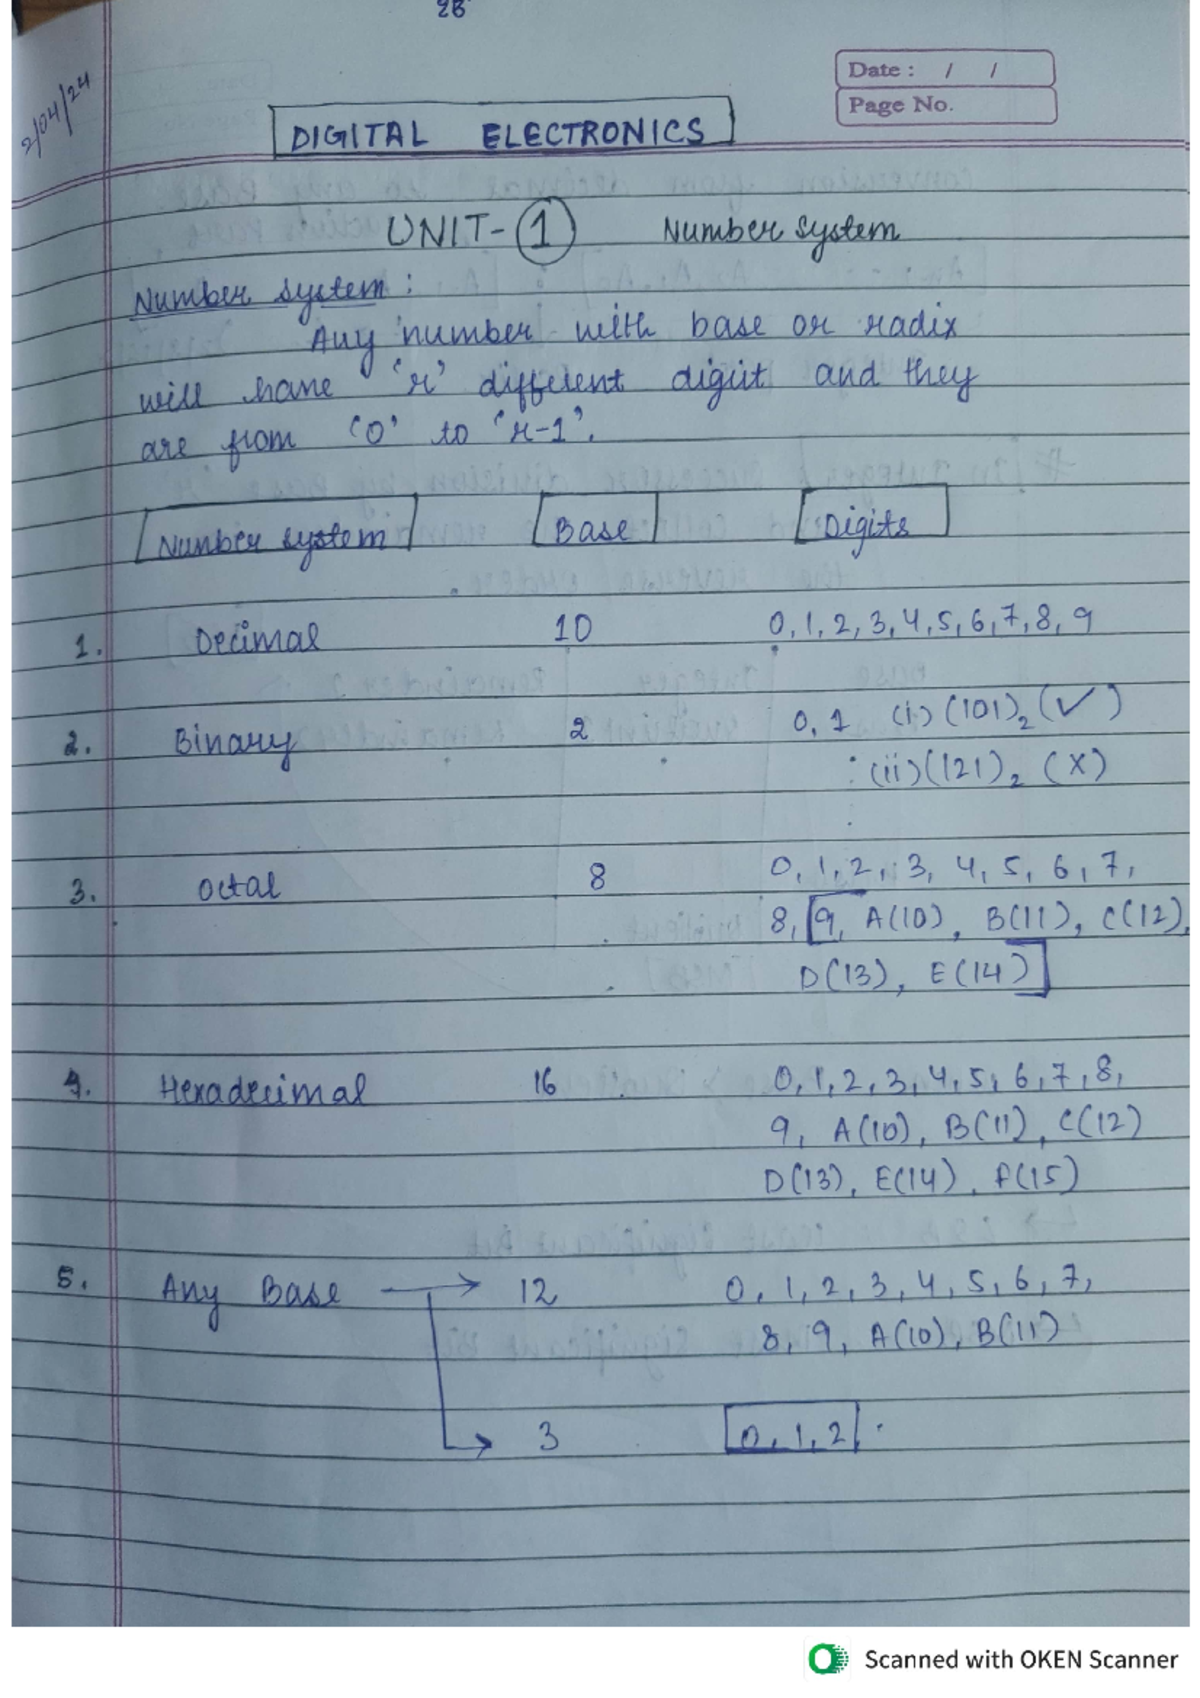 28
2/04/24
Date : / /
Page No.
DIGITAL ELECTRONICS
UNIT-1 Number system
Number system :
Any number with base or radix
will have 'r' different digit and they
are from '0' to 'r-1'.
Number system Base Digits
1. Decimal 10 0,1,2,3,4,5,6,7,8,9
2. Binary 2 0,1 (i) (101)₂ (✓)
: (ii) (121)₂ (X)
3. Octal 8 0,1,2,3,4,5,6,7,
8, 9, A(10), B(11), C(12),
D(13), E(14)
4. Hexadecimal 16 0,1,2,3,4,5,6,7,8,
9, A(10), B(11), C(12)
D(13), E(14), F(15)
5. Any Base → 12 0,1,2,3,4,5,6,7,
8,9, A(10), B(11)
→ 3 0,1,2.
Scanned with OKEN Scanner